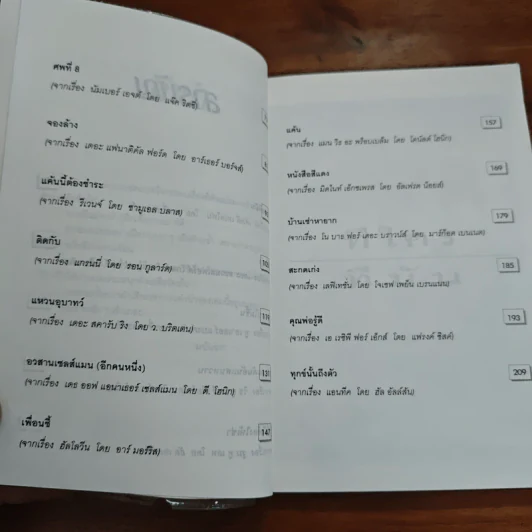 ศพที่ 8
(จากเรื่อง นัมเบอร์ เอจต์ โดย แจ็ค ริตชี)
จองล้าง
(จากเรื่อง เดอะ แฟนาติคัล ฟอร์ด โดย อาร์เธอร์ บอร์จส์)
แค้นนี้ต้องชำระ
(จากเรื่อง รีเวนจ์ โดย ซามูเอล บลาส)
ติดกับ
(จากเรื่อง แกรนนี่ โดย รอน กูลาร์ต)
แหวนอุบาทว์
(จากเรื่อง เดอะ สคารับ ริง โดย ว. บริดเดน)
อวสานเซลส์แมน (อีกคนหนึ่ง)
(จากเรื่อง เดธ ออฟ แอนาเธอร์ เซลส์แมน โดย ดี. โฮนิก)
เพื่อนซี้
147
(จากเรื่อง ฮัลโลวีน โดย อาร์ มอร์ริส)
แค้น
157
(จากเรื่อง แมน วิธ อะ พร็อบเบล็ม โดย โดนัลด์ โฮนิก)
หนังสือสีแดง
169
(จากเรื่อง มิดไนท์ เอ๊กซเพรส โดย อัลเฟรด น้อยส์)
บ้านเช่าหายาก
179
(จากเรื่อง โน บาธ ฟอร์ เดอะ บราวน์ส์ โดย มาร์ก็อต เบนเนต)
สะกดเก่ง
185
(จากเรื่อง เลฟิเทชัน โดย โจเซฟ เพย์น เบรนแนน)
คุณพ่อรู้ดี
193
(จากเรื่อง เอ เรซิพี ฟอร์ เอ้กส์ โดย แฟรงค์ ซิสค์)
ทุกข์นั้นถึงตัว
209
(จากเรื่อง แอนทีค โดย ฮัล อัลล์สัน)